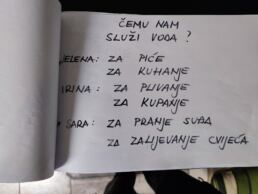 ČEMU NAM
SLUŽI VODA?
JELENA: ZA PIĆE
ZA KUHANJE
IRINA: ZA PLIVANJE
ZA KUPANJE
SARA: ZA PRANJE SUĐA
ZA ZALIJEVANJE CVIJEĆA